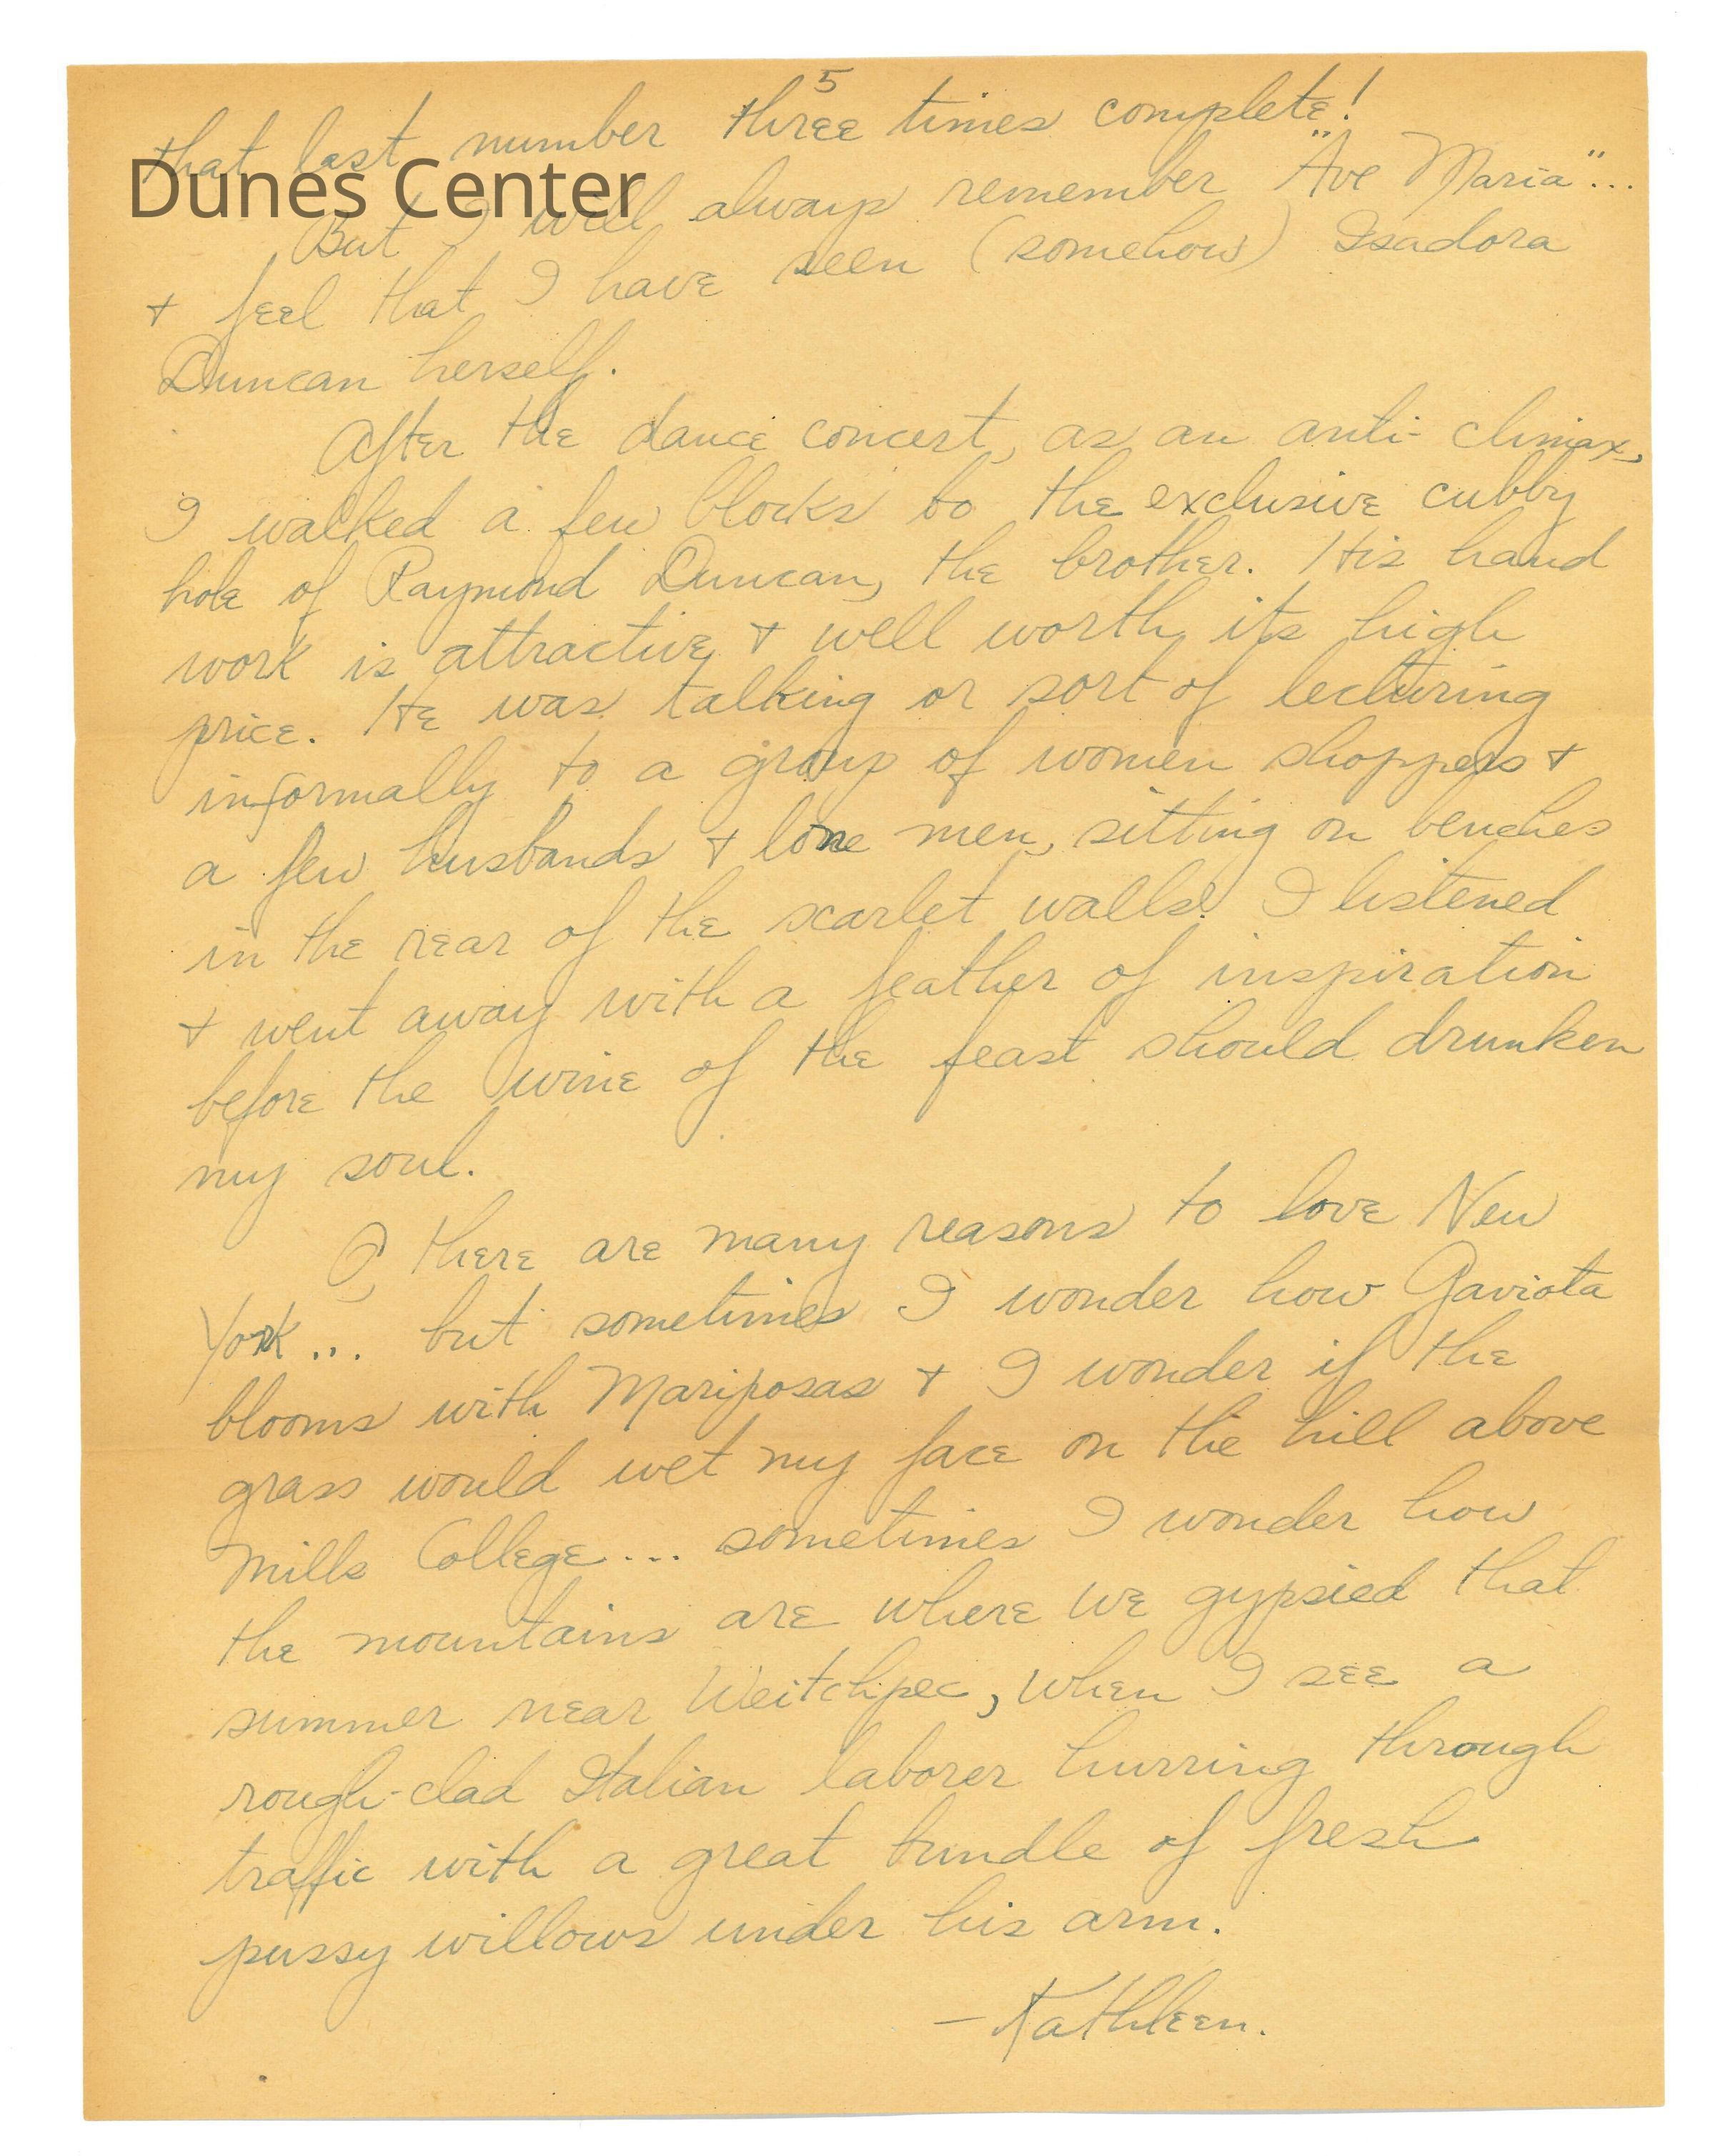 5
that last number three times complete!
Dunes Center
But I will always remember "Ave Maria"...
+ feel that I have seen (somehow) Isadora
Duncan herself.
After the dance concert, as an anti-climax,
I walked a few blocks to the exclusive cubby
hole of Raymond Duncan, the brother. His hand
work is attractive + well worth its high
price. He was talking or sort of lecturing
informally to a group of women shoppers +
a few husbands + lone men, sitting on benches
in the rear of the scarlet walls. I listened
+ went away with a feather of inspiration
before the wine of the feast should drunken
my soul.
O, there are many reasons to love New
York ... but sometimes I wonder how Gaviota
blooms with Mariposas + I wonder if the
grass would wet my face on the hill above
Mills College.... sometimes I wonder how
the mountains are where we gypsied that
summer near Weitchpec, when I see a
rough-clad Italian laborer hurring through
traffic with a great bundle of fresh
pussy willows under his arm.
- Kathleen.